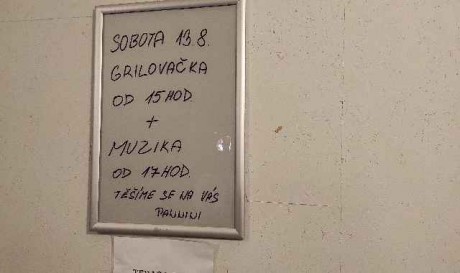 SOBOTA 13.8.
GRILOVAČKA
OD 15HOD.
+
MUZIKA
OD 17HOD.
TĚŠÍME SE NA VÁS
PANNINI